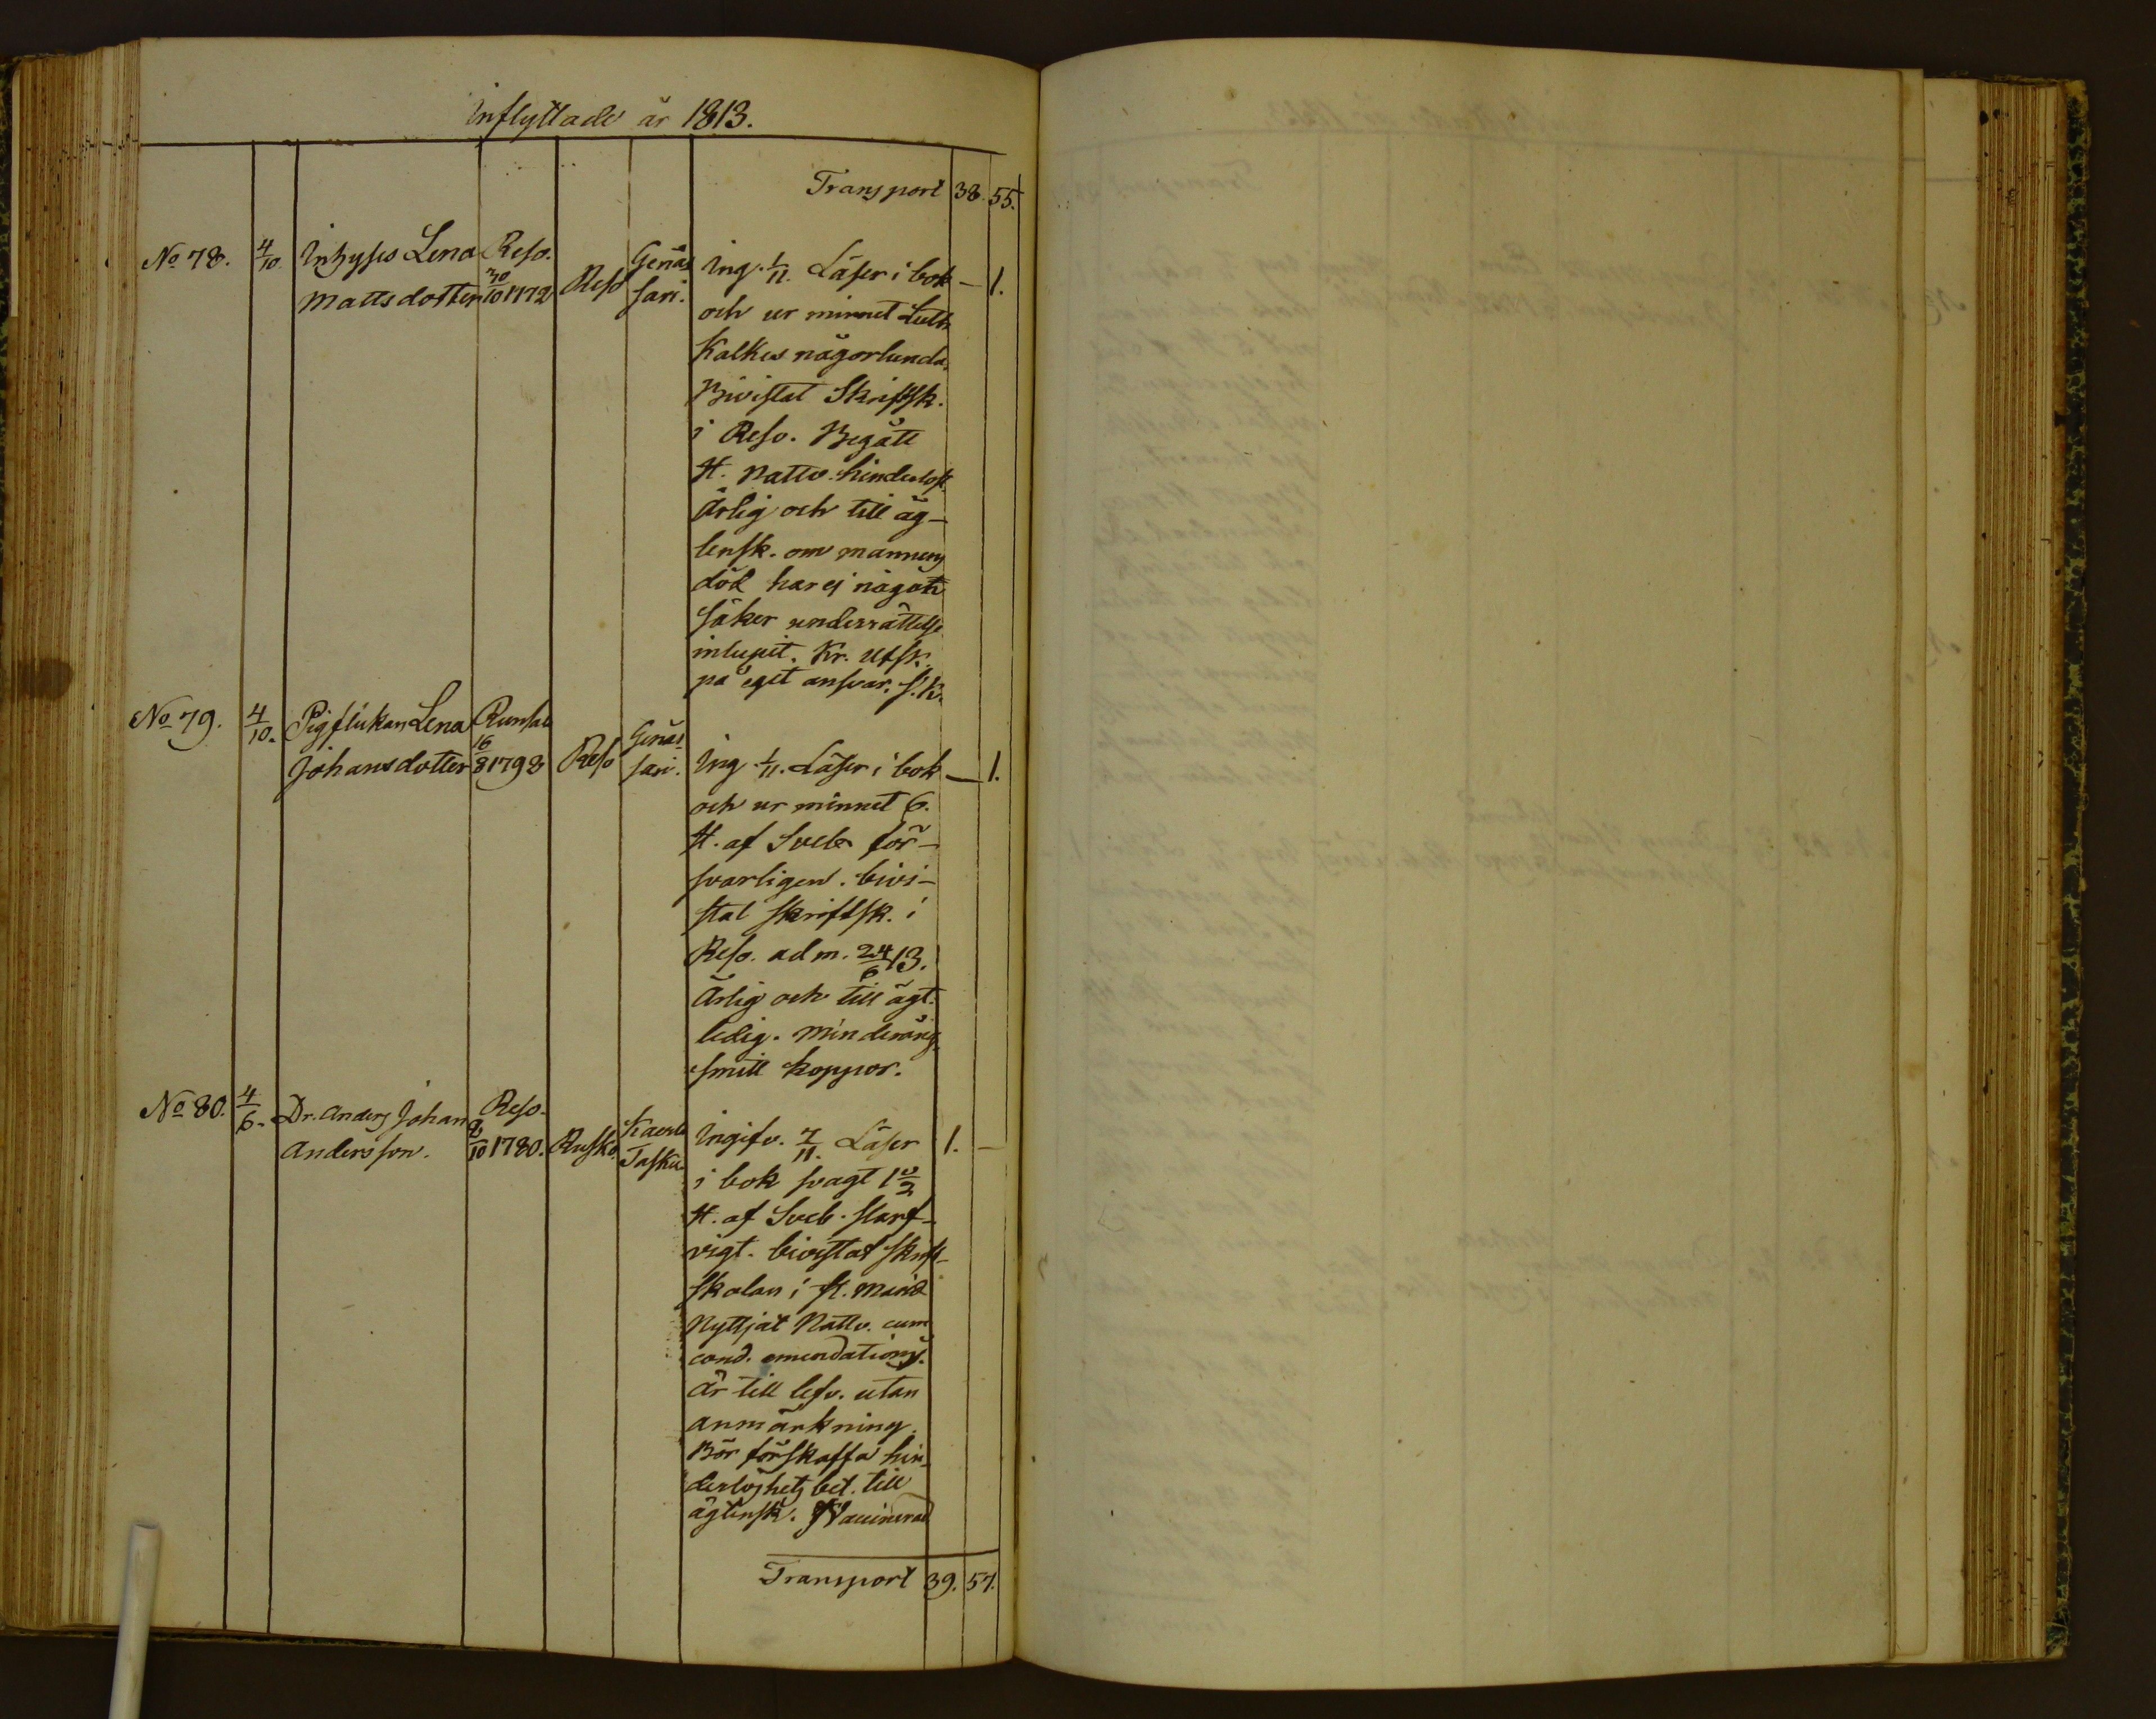 Inflyttade år 1813.
Transport 38. 55.
No 78. 4/10. Inhyses Lena Reso.
Mattsdotter 30/10 1772 Reso Genäs
sari.
Ing. 1/11. Läser i bok — 1.
och ur minnet Luth.
Kalkes någorlunda.
Bivistat Skriftsk.
i Reso. Begått
H. Nattv. hinderlöst.
Ärlig och till äg-
tensk. om mannens
död har ej någon
säker underrättelse
inlupit. Kr. utsk.
på eget ansvar. s. k.
No 79. 4/10. Pigflickan Lena Runsala
Johansdotter 16/8 1798 Reso Genäs
sari.
Ing. 1/11. Läser i bok — 1.
och ur minnet 6.
H. af Sveb. för-
svarligen. bivi-
stat skriftsk. i
Reso. adm. 24/6 13.
Ärlig och till ägt.
ledig. minderårig.
smitt koppor.
No 80. 4/6. Dr. Anders Johan Reso.
Andersson. 8/10 1780. Rusko. Kaerla
Tasku
Ingifv. 7/11. Läser 1. —
i bok svagt 1 1/2
H. af Sveb. slarf-
vigt. bivistat skrift-
skolan i St. Marie
Nyttjat Nattv. cum
cond. emendationis.
är till lefv. utan
anmärkning.
Bör förskaffa hin-
derlöshets bet. till
ägtensk. Vaccinerad
Transport 39. 57.